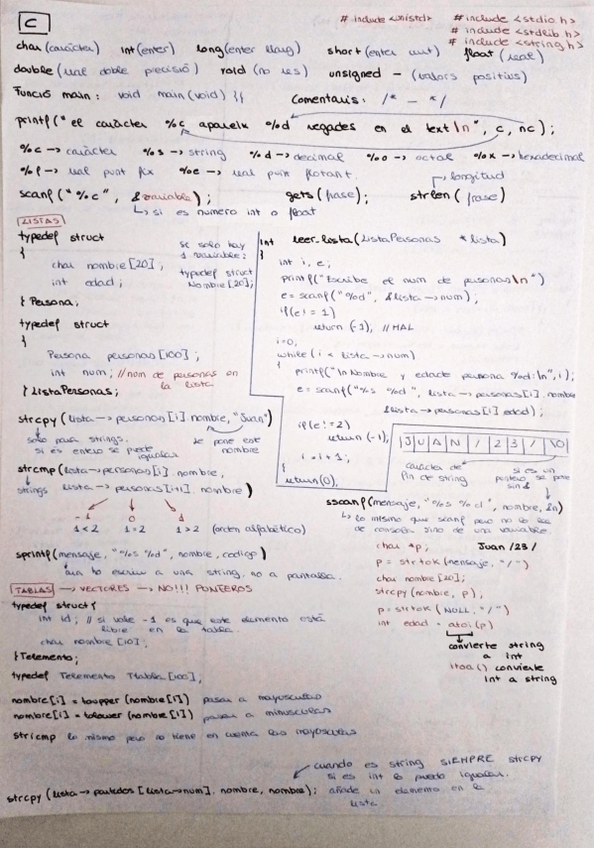 C
# include <unistd> # include <stdio.h>
# include <stdlib.h>
# include <string.h>
char (caràcter) int (enter) long (enter llarg) short (enter curt) float (real)
double (real doble precisió) void (no res) unsigned - (valors positius)
Funció main: void main (void) {{ Comentaris: /* - */
printf("el caràcter %c apareix %d vegades en el text\n", c, nc);
%c -> caràcter %s -> string %d -> decimal %o -> octal %x -> hexadecimal
%f -> real punt fix %e -> real punt flotant.
longitud
scanf("%c", &variable); gets(frase); strlen(frase)
si es numero int o float
LISTAS
typedef struct
{
char nombre[20];
int edad;
} Persona;
si solo hay
1 variable:
typedef struct
Nombre[20];
typedef struct
{
Persona personas[100];
int num; //num de personas en
la lista
} ListaPersonas;
int leer_lista (ListaPersonas *lista)
{
int i, e;
printf("Escribe el num de personas\n")
e = scanf("%d", &lista->num);
if(e!=1)
return (-1), //MAL
i=0,
while (i < lista->num)
{
printf("\n Nombre y edad persona %d:\n", i);
e = scanf("%s %d", lista->personas[i].nombre
&lista->personas[i].edad);
if(e!=2)
return (-1);
i = i+1;
}
return(0),
strcpy (lista -> personas[i].nombre, "Juan")
solo para strings.
si es entero se puede
igualar
se pone este
nombre
strcmp (lista->personas[i].nombre,
strings lista->personas[i+1].nombre)
-1 0 1
1<2 1=2 1>2 (orden alfabético)
sprintf (mensaje, "%s %d", nombre, codigo)
lo escriu a una string. no a pantalla.
JUAN/23/\0
caràcter de
fin de string
si es un
puntero se pone
sin &
sscanf(mensaje, "%s %d", nombre, &n)
lo mismo que scanf pero no lo lee
de consola sino de una variable.
char *p, Juan /23/
p = strtok (mensaje, "/")
char nombre [20];
strcpy (nombre, p),
p = strtok (NULL, "/")
int edad = atoi (p)
convierte string
a int
itoa() convierte
int a string
TABLAS -> VECTORES -> NO!!! PUNTEROS
typedef struct {
int id; // si vale -1 es que este elemento está
libre en la tabla.
char nombre [10];
} Telemento;
typedef Telemento Ttabla [100];
nombre[i] = toupper (nombre[i]) pasar a mayusculas
nombre[i] = tolower (nombre[i]) pasar a minusculas
stricmp lo mismo pero no tiene en cuenta las mayusculas
cuando es string SIEMPRE strcpy
si es int lo puedo igualar.
strcpy (lista-> [lista->num]. nombre, nombre); añade un elemento en la
lista